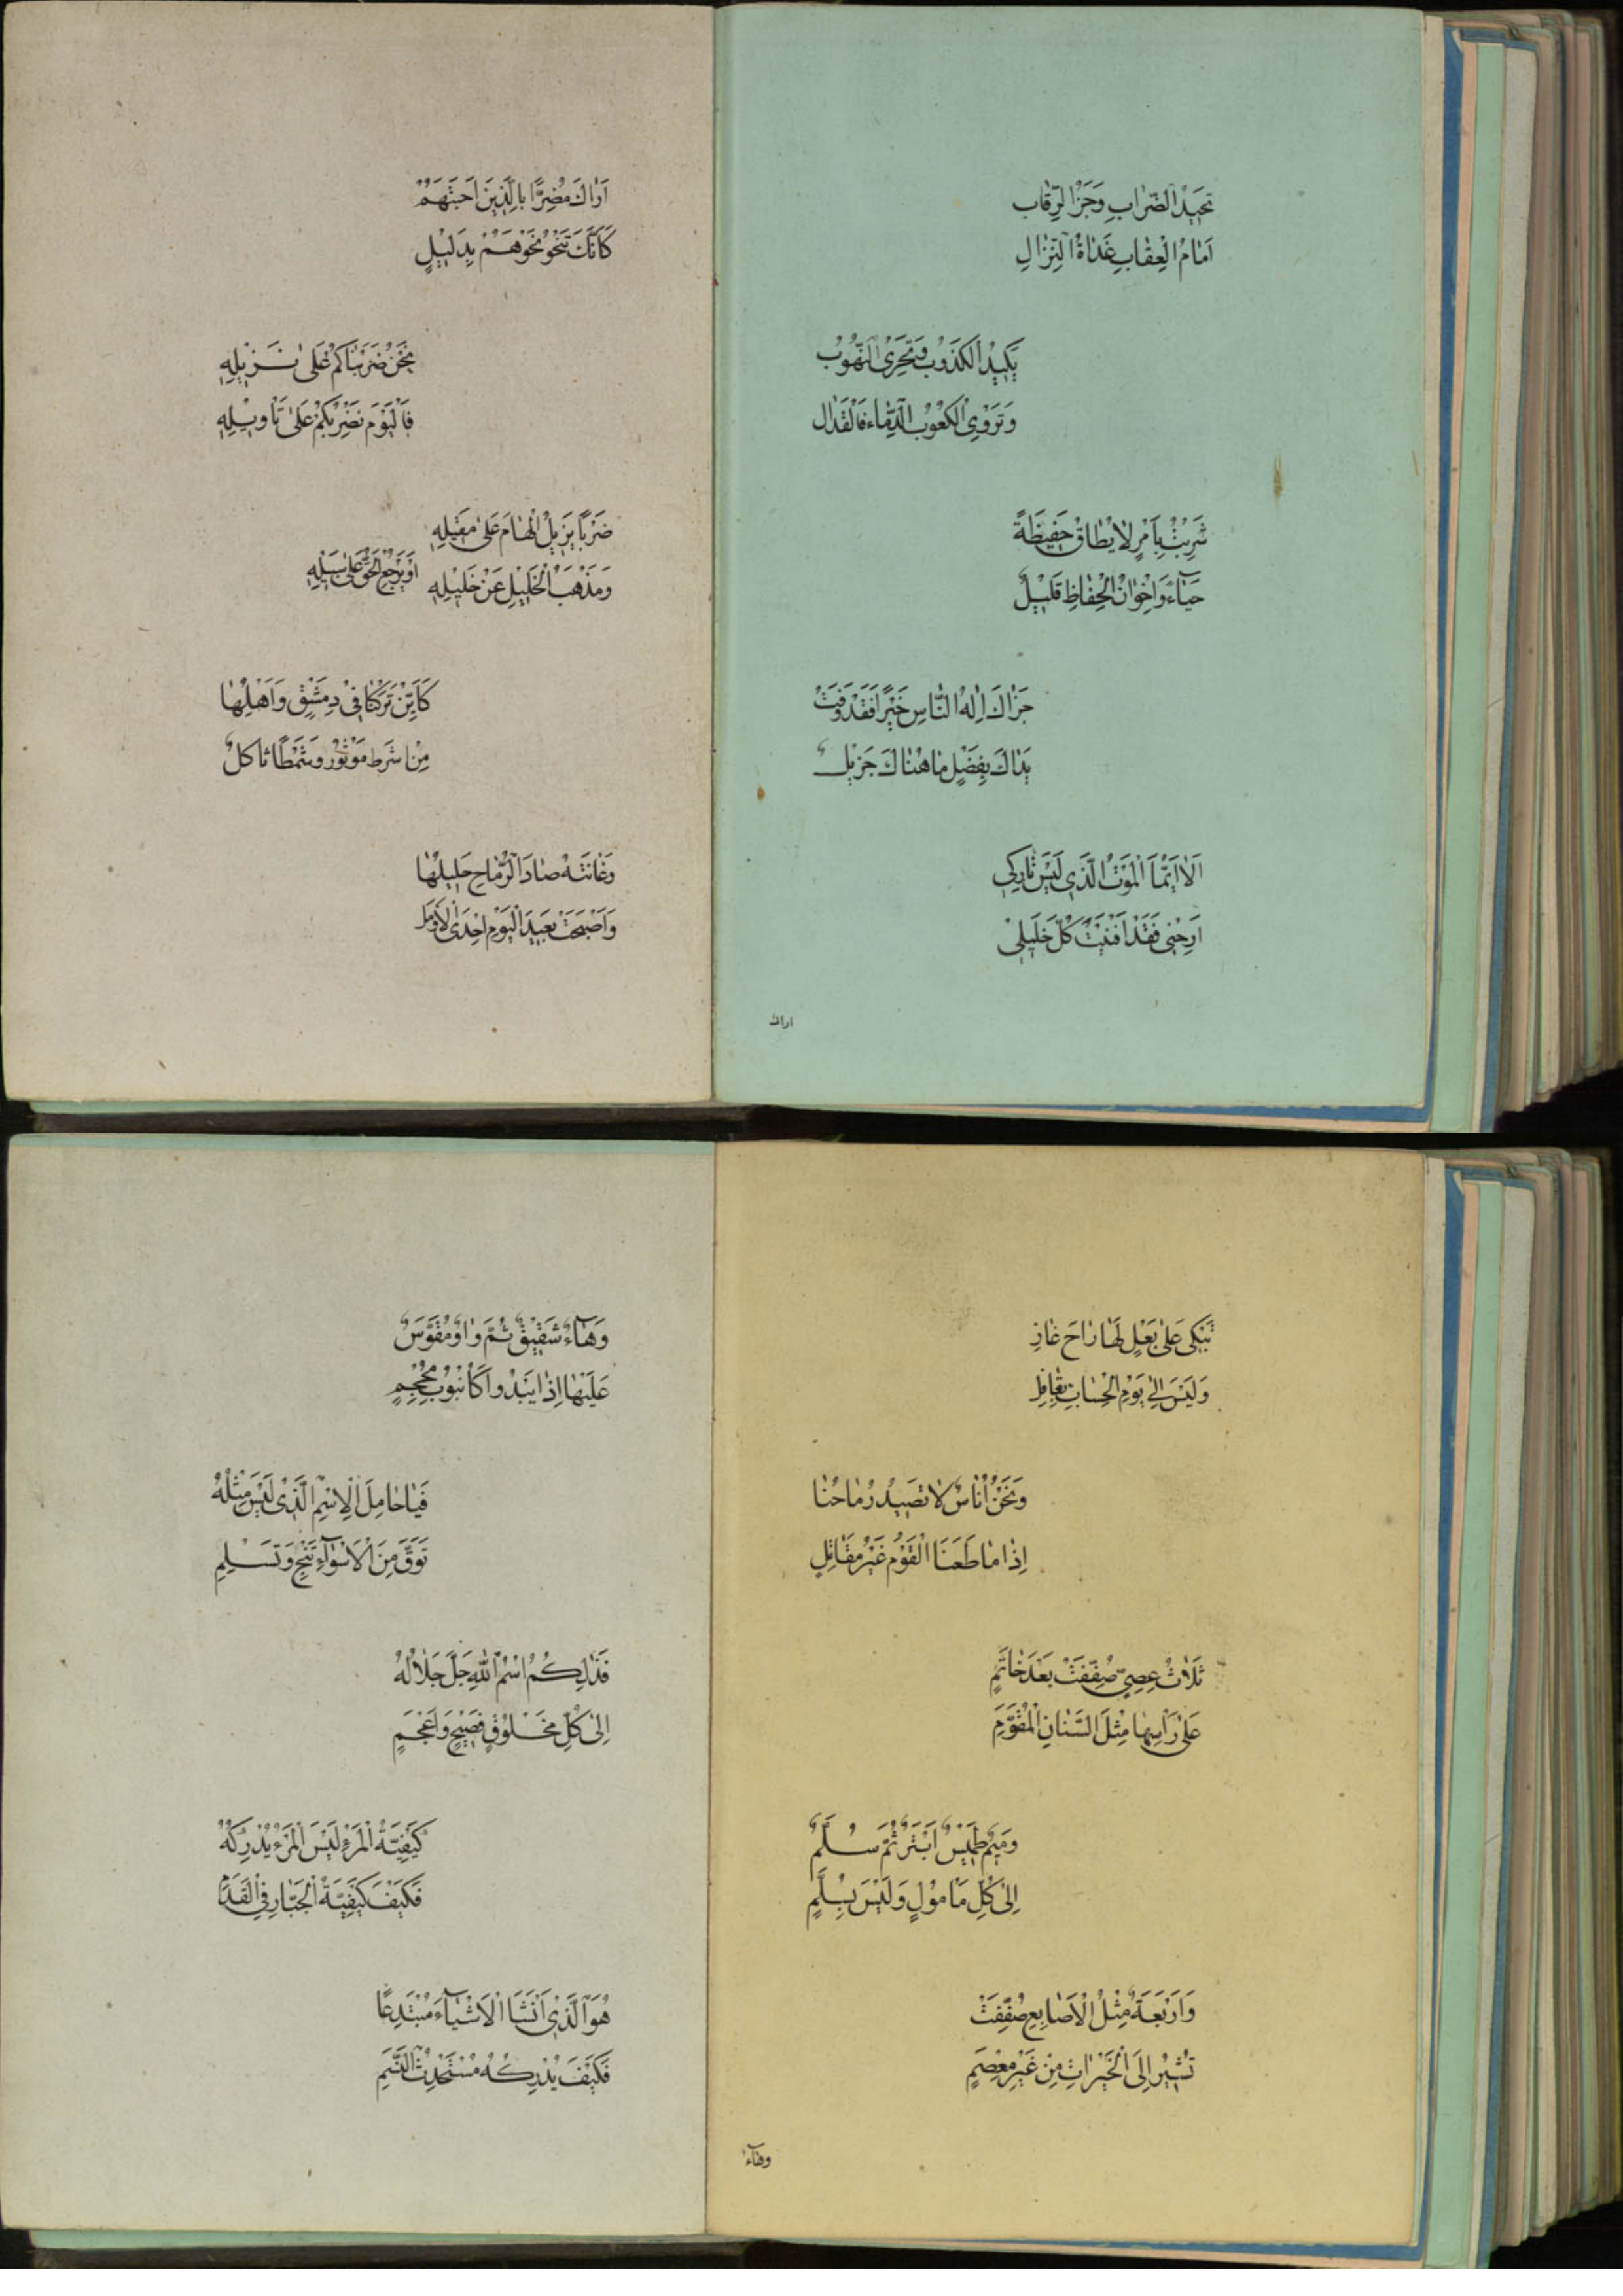 تَحِيدُ الضِّرَابِ وَجَزَّ الرِّقَاب
اَمَامَ الْعِقَابِ غَدَاةَ النِّزَالِ
يَكِيدُ الْكَذُوبَ وَتَجْرِى الْهَبُوبُ
وَتَرْوِى الْكُعُوبُ الدِّمَاء فَالْقَذَال
شَرِبْتُ بِاَمْرٍ لَا يُطَاقُ حَفِيظَةً
حَيَاءً وَاِخْوَانُ الْحِفَاظِ قَلِيلٌ
جَزَاكَ اِلٰهُ النَّاسِ خَيْرًا فَقَدْ وَفَتْ
يَدَاكَ بِفَضْلٍ مَا هُنَاكَ جَزِيلٌ
اَلَا اَيُّهَا الْمَوْتُ الَّذِى لَيْسَ تَارِكِى
اَرِحْنِى فَقَدْ اَفْنَيْتَ كُلَّ خَلِيلِى
اراك
اَرَاكَ مُضِرًّا بِالَّذِينَ اُحِبُّهُمْ
كَاَنَّكَ تَنْحُو نَحْوَهُمْ بِدَلِيلٍ
نَحْنُ ضَرَبْنَاكُمْ عَلَى تَنْزِيلِهِ
فَالْيَوْمَ نَضْرِبُكُمْ عَلَى تَاْوِيلِهِ
ضَرْبًا يُزِيلُ الْهَامَ عَلَى مَقِيلِهِ
وَمَذْهَبَ الْخَلِيلِ عَنْ خَلِيلِهِ اَوْ يَرْجِعَ الْحَقُّ عَلَى سَبِيلِهِ
كَاَيِّنْ تَرَكْنَا فِى دِمَشْقٍ وَاَهْلِهَا
مِنْ اشَرط مَوْتُور وَشَمْطَا ثَاكِلٌ
وَغَانِيَةٌ صَادَ الرِّمَاحُ حَلِيلَهَا
وَاَصْبَحَتْ بَعِيدَ الْيَوْمِ اِحْدَى الْاَرَامِل
تُبَكِّى عَلَى بَعْلٍ لَهَا رَاحَ غَازِ
وَلَيْسَ اِلَى يَوْمِ الْحِسَابِ بِقَافِلِ
وَنَحْنُ اُنَاسٌ لَا تَصِيدُ رِمَاحُنَا
اِذَا مَا طَعَنَّا الْقَوْمَ غَيْرَ مُقَاتِلٍ
ثَلَاثُ عِصِيٍّ صُفِّفَتْ بَعْدَ خَاتَمٍ
عَلَى رَاْسِهَا مِثْلَ السِّنَانِ الْمُقَوَّمِ
وَمِيمٌ طَمِيسٌ اَبْتَرُ ثُمَّ سُلَّمٌ
اِلَى كُلِّ مَامُولٍ وَلَيْسَ بِسُلَّمٍ
وَاَرْبَعَةٌ مِثْلُ الْاَصَابِعِ صُفِّفَتْ
تُشِيرُ اِلَى الْخَيْرَاتِ مِنْ غَيْرِ مِعْصَمٍ
وهاء
وَهَاءٌ شَقِيقٌ ثُمَّ وَاوٌ مُقَوَّسٌ
عَلَيْهَا اِذَا يَبْدُوا كَاُنْبُوبِ مِحْجَمٍ
فَيَا حَامِلَ الْاِسْمِ الَّذِى لَيْسَ مِثْلُهُ
تَوَقَّ مِنَ الْاَسْوَاءِ تَنْجِ وَتَسْلِمِ
فَذٰلِكُمُ اسْمُ اللّٰهِ جَلَّ جَلَالُهُ
اِلَى كُلِّ مَخْلُوقٍ فَصِيحٍ وَاَعْجَمٍ
كَيْفِيَّةُ الْمَرْءِ لَيْسَ الْمَرْءُ يُدْرِكُهُ
فَكَيْفَ كَيْفِيَّةُ الْجَبَّارِ فِى الْقِدَمِ
هُوَ الَّذِى اَنْشَا الْاَشْيَاءَ مُبْتَدِعًا
فَكَيْفَ يُدْرِكُهُ مُسْتَحْدَثُ النَّسَمِ